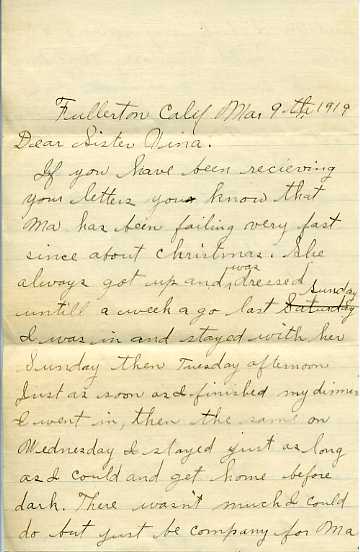 Fullerton Calif Mar 9th, 1919
Dear Sister Nina.
If you have been recieving
your letters you know that
Ma has been failing very fast
since about christmas. She
always got up and was dressed
untill a week ago last Saturday Sunday
I was in and stayed with her
Sunday then Tuesday afternoon
Just as soon as I finished my dinner
I went in, then the same on
Wednesday I stayed just as long
as I could and get home before
dark. There wasn't much I could
do but just be company for Ma